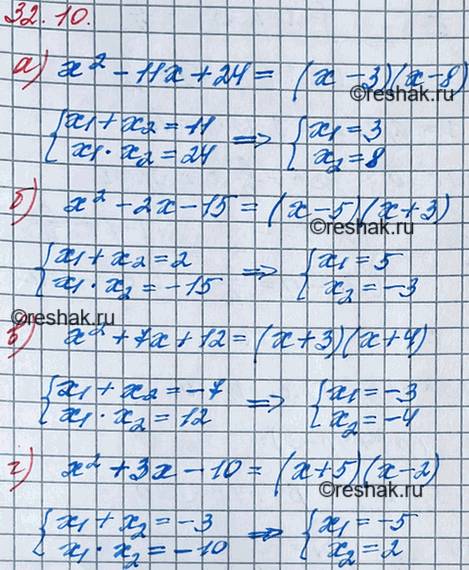 32.10.
а) x² - 11x + 24 = (x - 3)(x - 8)
©reshak.ru
{x₁ + x₂ = 11 {x₁ · x₂ = 24 ⇒ {x₁ = 3 {x₂ = 8
б) x² - 2x - 15 = (x - 5)(x + 3)
©reshak.ru
{x₁ + x₂ = 2 {x₁ · x₂ = -15 ⇒ {x₁ = 5 {x₂ = -3
©reshak.ru
в) x² + 7x + 12 = (x + 3)(x + 4)
{x₁ + x₂ = -7 {x₁ · x₂ = 12 ⇒ {x₁ = -3 {x₂ = -4
г) x² + 3x - 10 = (x + 5)(x - 2)
©reshak.ru
{x₁ + x₂ = -3 {x₁ · x₂ = -10 ⇒ {x₁ = -5 {x₂ = 2